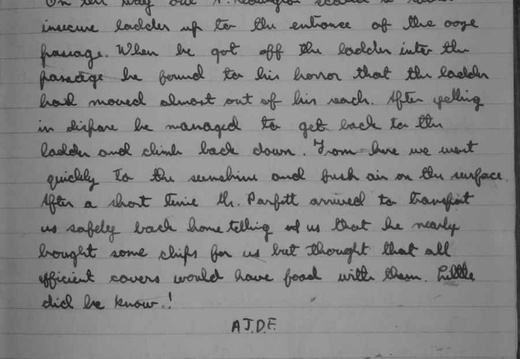 On the way out
insecure ladder up to the entrance of the ooze
passage. When he got off the ladder into the
passage he found to his horror that the ladder
had moved almost out of his reach. After yelling
in dispare he managed to get back to the
ladder and climb back down. From here we went
quickly to the sunshine and fresh air on the surface.
After a short time Mr. Parfitt arrived to transport
us safely back home telling us that he nearly
bought some chips for us but thought that all
efficient cavers would have food with them. Little
did he know.!
A.J.D.F.